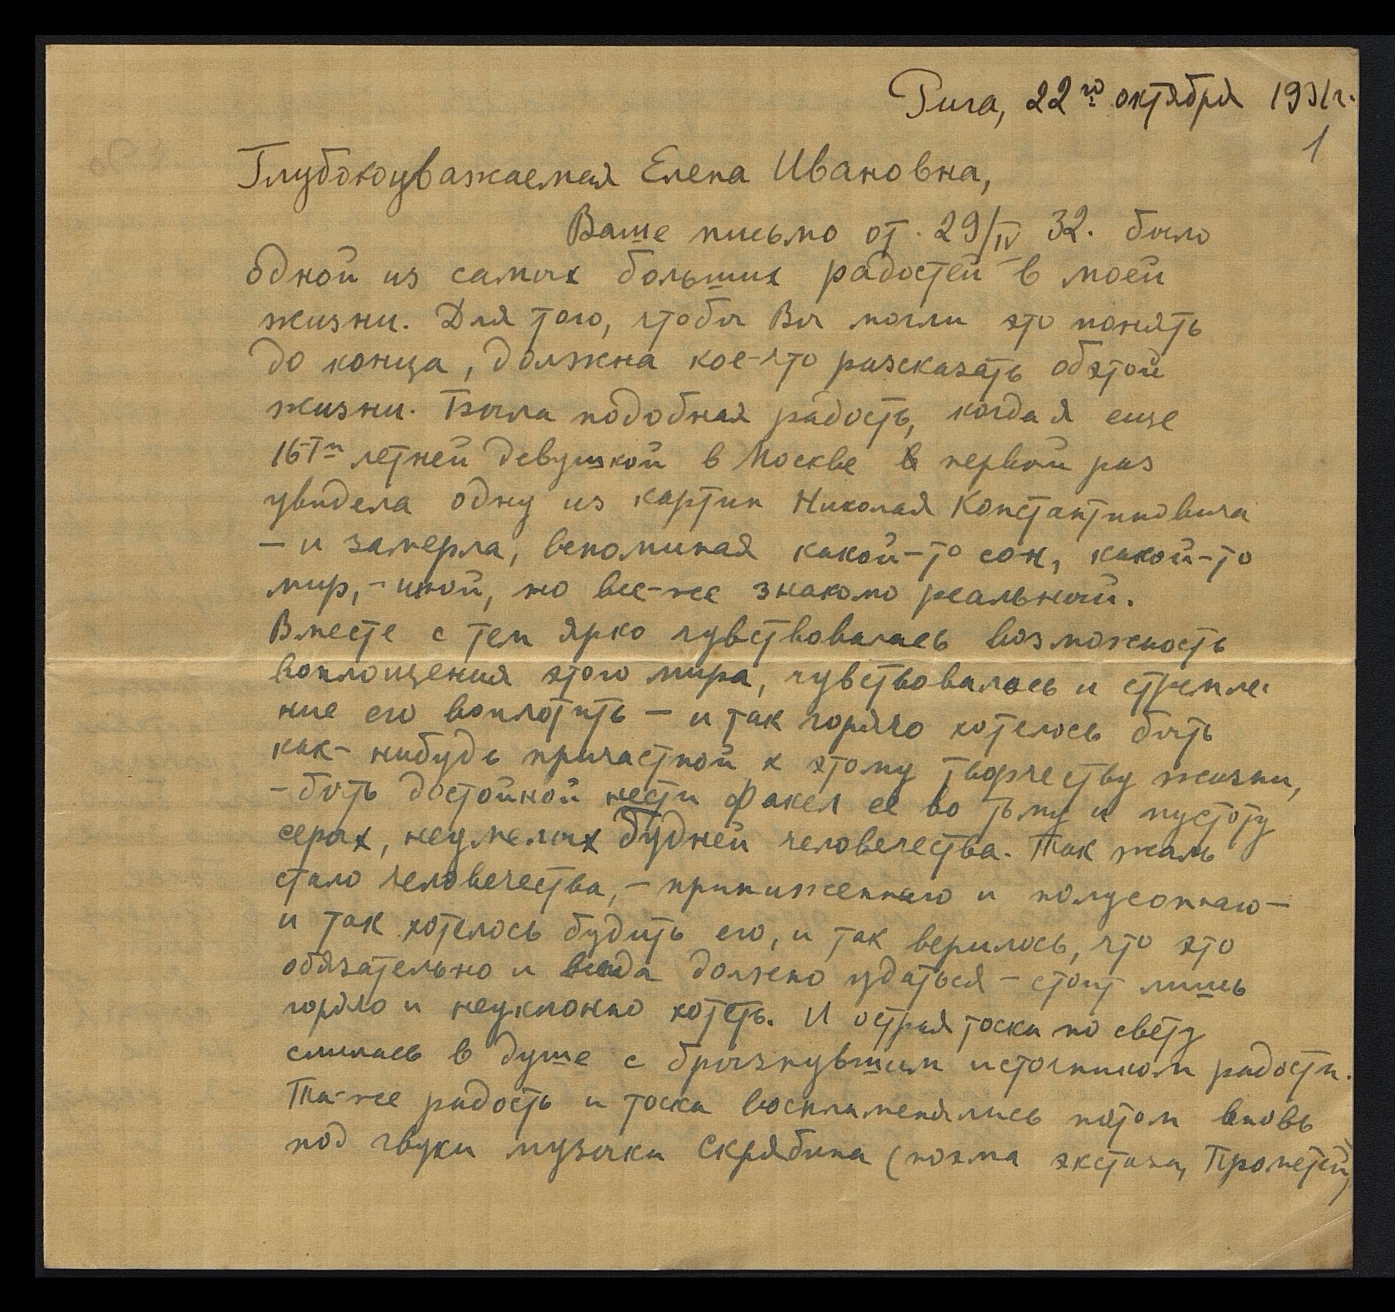 Рига, 22го октября 1931г.
1
Глубокоуважаемая Елена Ивановна,
Ваше письмо от 29/IV 32. было
одной из самых больших радостей в моей
жизни. Для того, чтобы Вы могли это понять
до конца, должна кое-что разсказать об этой
жизни. Была подобная радость, когда я еще
16ти летней девушкой в Москве в первый раз
увидела одну из картин Николая Константиновича
– и замерла, вспоминая какой-то сон, какой-то
мир, – иной, но все-же знакомо реальный.
Вместе с тем ярко чувствовалась возможность
воплощения этого мира, чувствовалось и стремле-
ние его воплотить – и так горячо хотелось быть
как-нибудь причастной к этому творчеству жизни,
– быть достойной нести факел ее во тьму и пустоту
серых, неумелых будней человечества. Так жаль
стало человечества, – приниженнаго и полусоннаго –
и так хотелось будить его, и так верилось, что это
обязательно и всегда должно удаться – стоит лишь
горячо и неуклонно хотеть. И острая тоска по свету
слилась в душе с брызнувшим источником радости.
Та-же радость и тоска воспламенялись потом вновь
под звуки музыки Скрябина (поэма экстаза, Прометей)